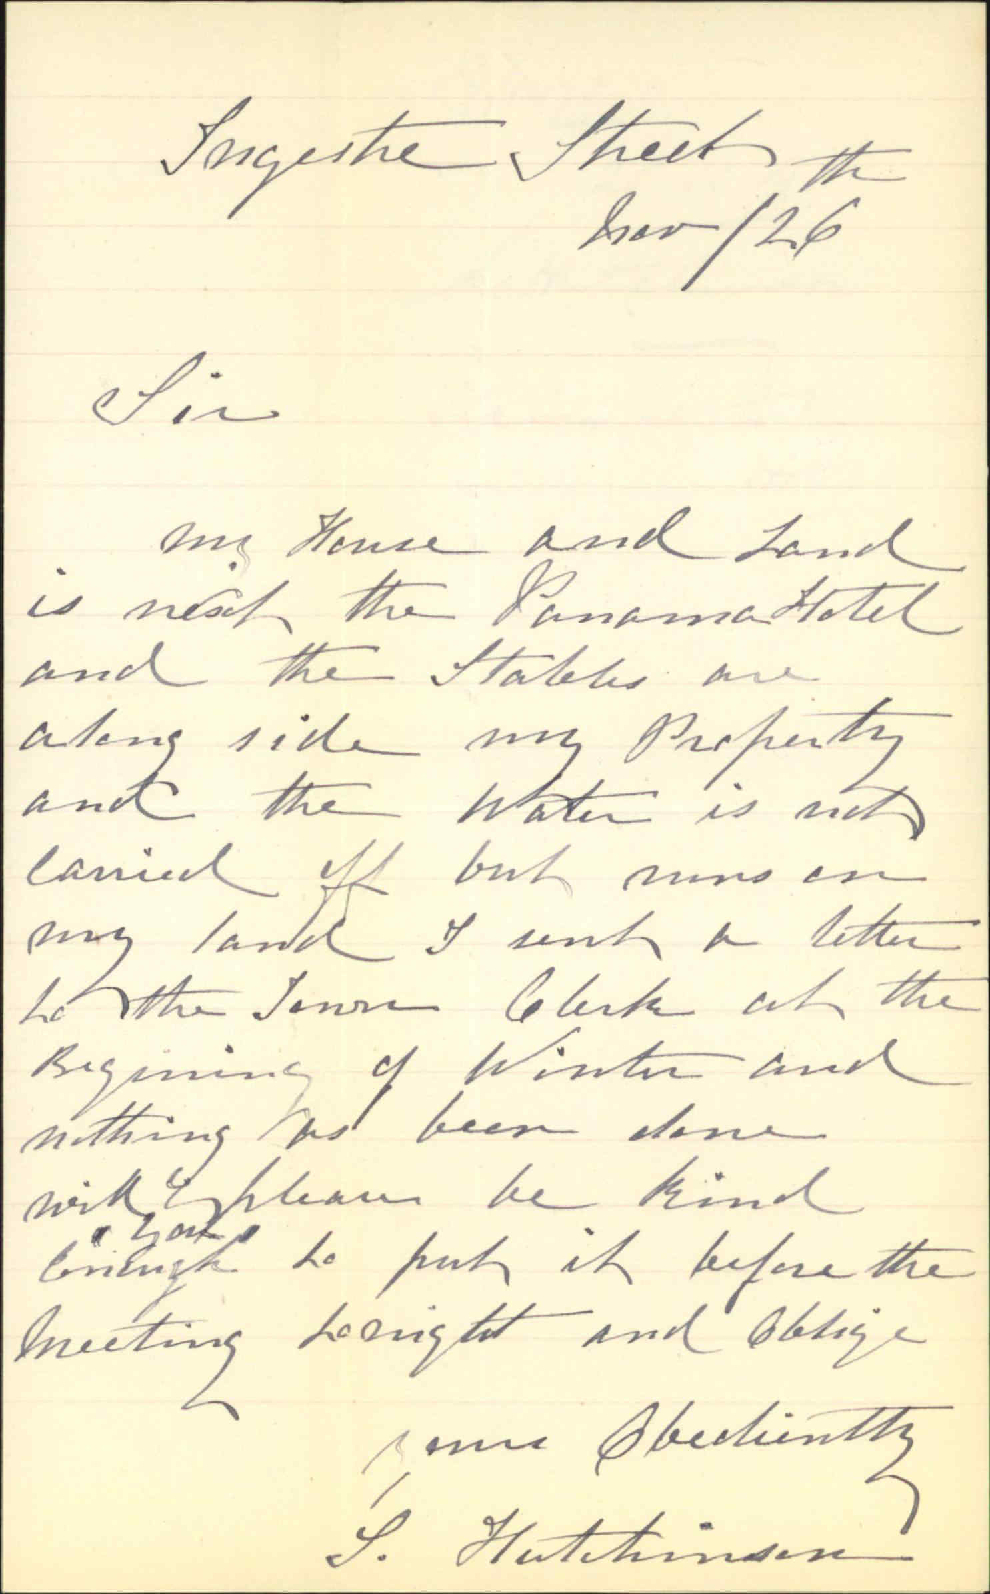 Ingestre Street
Nov / 26th
Sir
my House and Land
is next the Panama Hotel
and the Stables are
along side my Property
and the Water is not
carried off but runs on
my land I sent a letter
to the Town Clerk at the
Begining of Winter and
nothing as been done
will you please be kind
enough to put it before the
Meeting tonight and Oblige
yours Obediently
S. Hutchinson